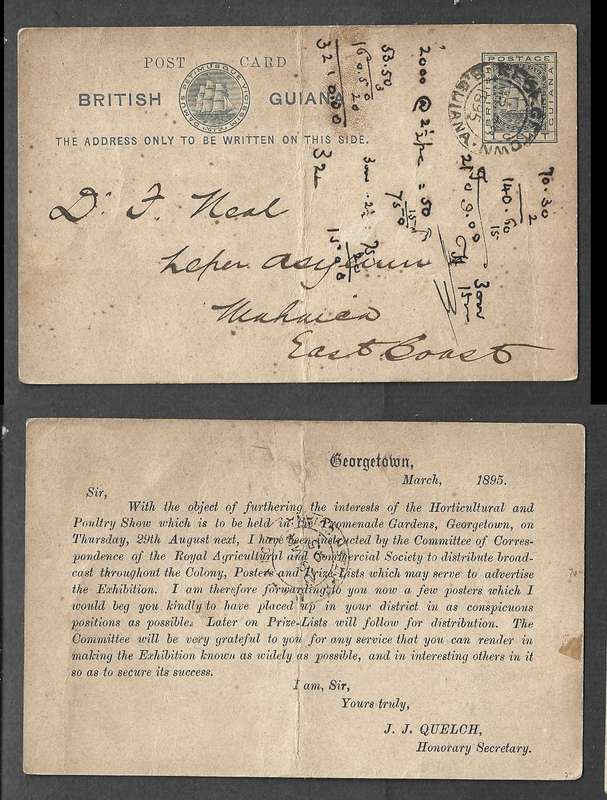 POST CARD
BRITISH GUIANA
DAMUS PETIMUSQUE VICISSIM
THE ADDRESS ONLY TO BE WRITTEN ON THIS SIDE.
POSTAGE
BRITISH
GUIANA
GUIANA
1895
Dr. F. Neal
Leper Asylum
Mahaica
East Coast
2000 @
= 50
53.50
160.50
321.00
32
70.30
2
140.60
15
15
750
15.00
Georgetown,
March, 1895.
Sir,
With the object of furthering the interests of the Horticultural and
Poultry Show which is to be held in the Promenade Gardens, Georgetown, on
Thursday, 29th August next, I have been instructed by the Committee of Corres-
pondence of the Royal Agricultural and Commercial Society to distribute broad-
cast throughout the Colony, Posters and Prize-Lists which may serve to advertise
the Exhibition. I am therefore forwarding to you now a few posters which I
would beg you kindly to have placed up in your district in as conspicuous
positions as possible. Later on Prize-Lists will follow for distribution. The
Committee will be very grateful to you for any service that you can render in
making the Exhibition known as widely as possible, and in interesting others in it
so as to secure its success.
I am, Sir,
Yours truly,
J. J. QUELCH,
Honorary Secretary.